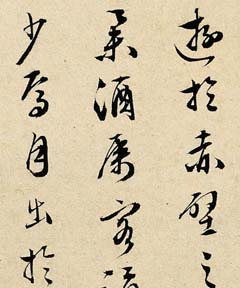 遊於赤壁之
舉酒属客
少焉月出於